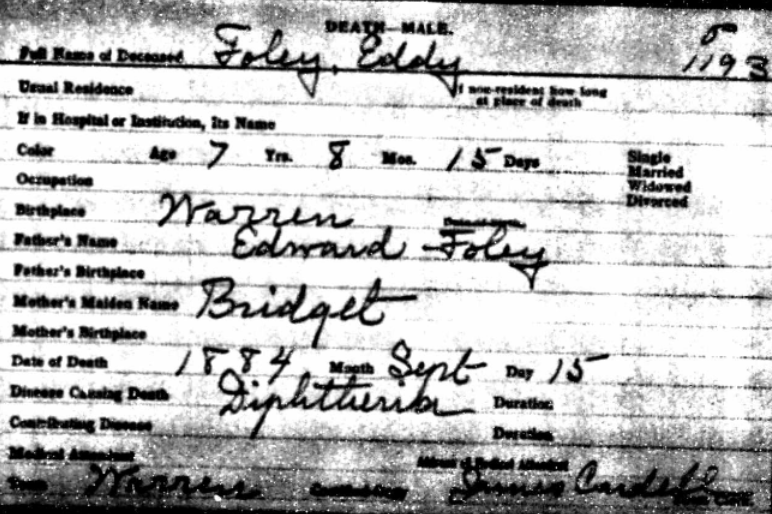 DEATH—MALE.
5
Full Name of Deceased Foley, Eddy 1193
Usual Residence If non-resident how long at place of death
If in Hospital or Institution, Its Name
Color Age 7 Yrs. 8 Mos. 15 Days Single
Married
Widowed
Divorced
Occupation
Birthplace Warren
Father's Name Edward Foley
Father's Birthplace
Mother's Maiden Name Bridget
Mother's Birthplace
Date of Death 1884 Month Sept Day 15
Disease Causing Death Diphtheria Duration
Contributing Disease Duration
Medical Attendant Address of Medical Attendant
Town Warren James Cardell